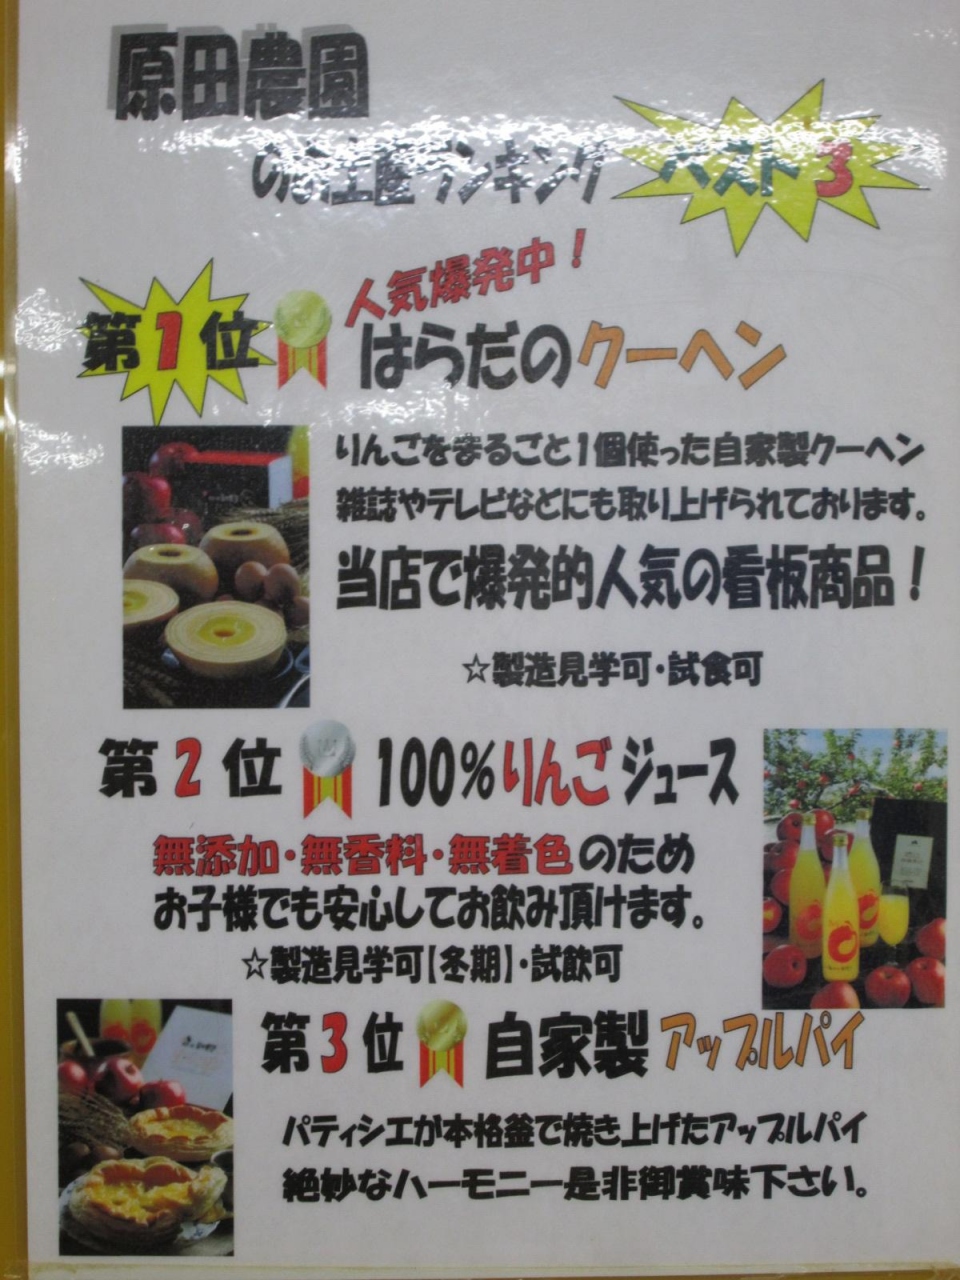 原田農園
のお土産ランキング ベスト3
人気爆発中！
第1位 はらだのクーヘン
りんごをまるごと1個使った自家製クーヘン
雑誌やテレビなどにも取り上げられております。
当店で爆発的人気の看板商品！
☆製造見学可・試食可
第2位 100%りんごジュース
無添加・無香料・無着色のため
お子様でも安心してお飲み頂けます。
☆製造見学可【冬期】・試飲可
第3位 自家製アップルパイ
パティシエが本格釜で焼き上げたアップルパイ
絶妙なハーモニー是非御賞味下さい。